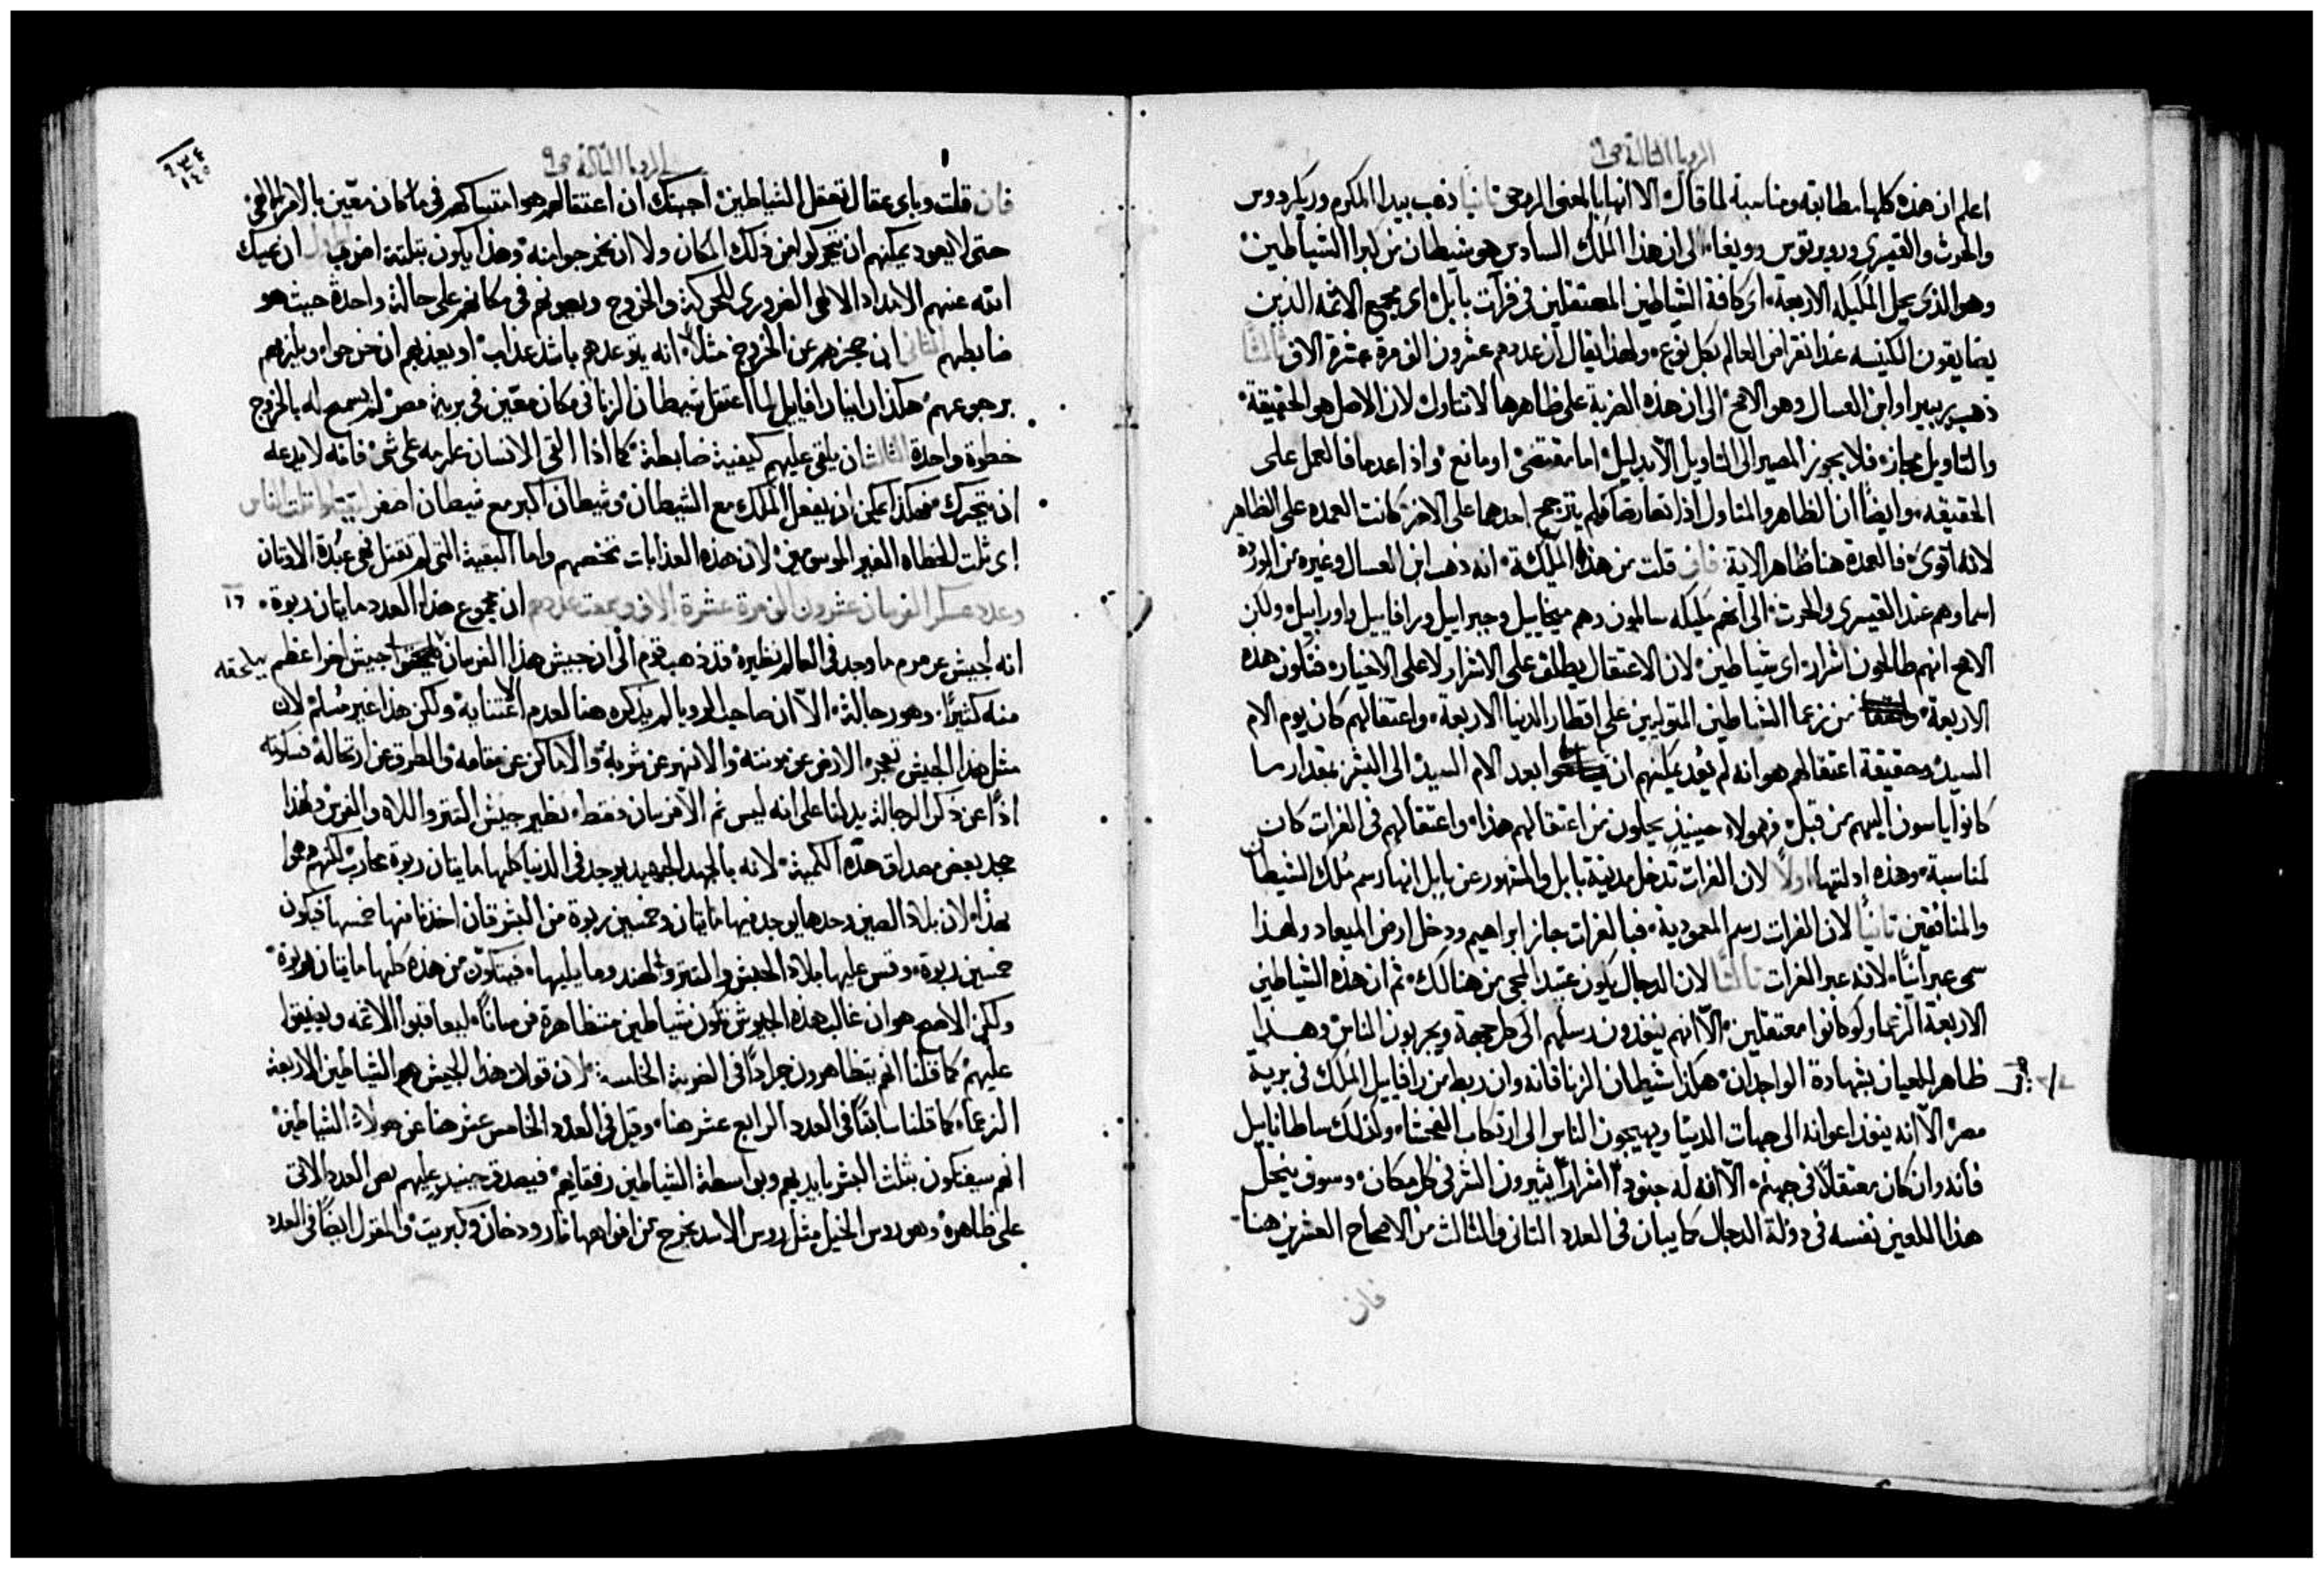 الرويا الثالثة ص٩
اعلم ان هذه كلها مطابقه ومناسبة لما قال الا انها بالمعنى الروحى ثانيا ذهب بيدا المكرم وريكردوس
والحرث والقيسرى وروبرتوس وويغا الى ان هذا الملك السادس هو شيطان من كبرا الشياطين
وهو الذى يحل الملايكه الاربعة اى كافة الشياطين المعتقلين فى فرات بابل اى مجمع الاثمه الذين
يضايقون الكنيسه عند انقراض العالم بكل نوع ولهذا يقال ان عددهم عشرون الف مرة عشرة الاف ثالثا
ذهب ربيرا وابن العسال وهو الاصح الى ان هذه الضربة على ظاهرها لا تتاول لان الاصل هو الحقيقة
والتاويل مجاز فلا يجوز المصير الى التاويل الا بدليل اما مقتضى او مانع واذا عدما فالعمل على
الحقيقه وايضا ان الظاهر والمتاول اذا تعارضا فلم يترجح احدهما على الاخر كانت العمده على الظاهر
لانه اقوى فالعمدة هنا ظاهر الاية فان قلت من هذه الملايكة انه ذهب ابن العسال وغيره من
اسماوهم عند القيسرى والحرث الى انهم ملايكه سالمون وهم ميخاييل وجبراييل ورافاييل واوراييل ولكن
الاصح انهم طالحون اشرار اى شياطين لان الاعتقال يطلق على الاشرار لا على الاخيار فتكون هذه
الاربعة من زعما الشياطين المتوليين على اقطار الدنيا الاربعة واعتقالهم كان يوم الام
السيد وحقيقة اعتقالهم هو انه لم يعد يمكنهم ان بعد الام السيد الى البشر بمقدار ما
كانوا ياسون اليهم من قبل فهولاء حينيذ يحلون من اعتقالهم هذا واعتقالهم فى الفرات كان
لمناسبة وهذه ادلتها اولا لان الفرات تدخل مدينة بابل والمشهور عن بابل انها رسم ملك الشيطان
والمنافقين ثانيا لان الفرات رسم المعمودية فبالفرات جاز ابراهيم ودخل ارض الميعاد ولهذا
سمى عبرانيا لانه عبر الفرات ثالثا لان الدجال يكون عتيد المجى من هنالك ثم ان هذه الشياطين
الاربعة الزعما ولو كانوا معتقلين الا انهم ينفذون رسلهم الى كل جهة ويجربون الناس وهذا
ظاهر للعيان بشهادة الواجدان هكذا شيطان الزنا فانه وان ربط من رافاييل الملك فى برية
مصر الا انه ينفذ اعوانه الى جهات الدنيا ويهيجون الناس الى ارتكاب الفحشا وكذلك ساطاناييل
فانه وان كان معتقلا فى جهنم الا انه له جنودا اشرارا يثيرون الشر فى كل مكان وسوف ينحل
هذا اللعين نفسه فى دولة الدجال كما يبان فى العدد الثانى والثالث من الاصحاح العشرين هنا
فان
الرويا الثالثة ص٩
فان قلت وباى عقال تعقل الشياطين اجبتك ان اعتقالهم هو امتساكهم فى مكان معين بالامر الالهى
حتى لا يعود يمكنهم ان يتحركوا من ذلك المكان ولا ان يخرجوا منه وهذا يكون بثلثة اضرب الاول ان يمسك
الله عنهم الامداد الالهى الضرورى للحركة والخروج ويصونهم فى مكانهم على حالة واحدة حيث هو
ضابطهم الثانى ان يحجزهم عن الخروج مثلا انه يتوعدهم باشد عذاب او يعذبهم ان خرجوا ويلزمهم
برجوعهم هكذا رافاييل لما اعتقل شيطان الزنا فى مكان معين فى برية مصر لم يسمح له بالخروج
خطوة واحدة الثالث ان يلقى عليهم كيفية ضابطة كما اذا القى الانسان على شى فانه لا يدعه
ان يتحرك فهكذا يمكن ان يفعل الملك مع الشيطان وشيطان اكبر مع شيطان اصغر ليقتلوا ثلث الناس
اى ثلث الخطاه الغير الموسومين لان هذه العذابات تخصهم واما البقية التى لم تقتل فهى عبدة الاوتان
وعدد عسكر الفرسان عشرون الف مرة عشرة الاف وسمعت عددهم ان مجموع هذا العدد مايتان ربوة ١٦
انه لجيش عرمرم ما وجد فى العالم نظيره قد ذهب قوم الى ان جيش هذا الفرسان يلحقه جيش اخر اعظم
منه كثيرا وهو رجالة الا ان صاحب الرويا لم يذكره هنا لعدم الاعتنا به ولكن هذا غير مسلم لان
مثل هذا الجيش تعجز الارض عن مونته والانهر عن شربه والاماكن عن مقامه والطرق عن ارتحاله فسكوته
اذا عن ذكر الرجالة يدلنا على انه ليس ثم الا فرسان فقط نظير جيش التتر واللاه والفرس ولهذا
جحد بعض مصداق هذه الكمية لانه بالجهد الجهيد يوجد فى الدنيا كلها مايتان ربوة محارب لكنهم وهموا
بهذا لان بلاد الصين وحدها يوجد فيها مايتان وخمسين ربوة من البشر فان اخذنا منها خمسها فيكون
خمسين ربوة وقس عليها بلاد الحبش والتتر والهند وما يليها فيتكون من هذه كلها مايتان ربوة
ولكن الاصح هو ان غالب هذه الجيوش تكون شياطين متظاهرة فرسانا ليعاقبوا الاثمه ويضيقوا
عليهم كما قلنا انهم يتظاهرون جرادا فى الضربة الخامسة لان قولات هذا الجيش هم الشياطين الاربعة
الزعما كما قلنا سابقا فى العدد الرابع عشر هنا وقيل فى العدد الخامس عشر هنا عن هولاء الشياطين
انهم سيفتكون بثلث البشر بايديهم وبواسطة الشياطين رفقايهم فيصدق حينيذ عليهم نص العدد الاتى
على ظاهره وهو روس الخيل مثل روس الاسد يخرج من افواهها نار ودخان وكبريت والمقول ايضا فى العدد